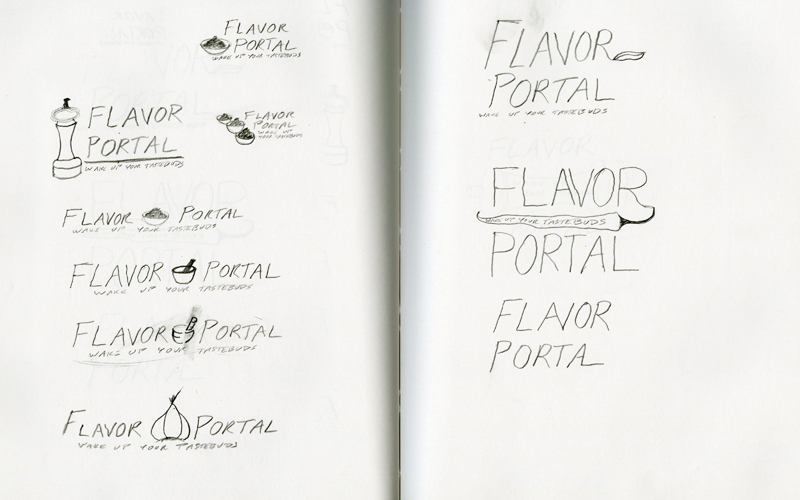 FLAVOR
PORTAL
WAKE UP YOUR TASTEBUDS
FLAVOR
PORTAL
WAKE UP YOUR TASTEBUDS
FLAVOR
PORTAL
WAKE UP
YOUR TASTEBUDS
FLAVOR PORTAL
WAKE UP YOUR TASTEBUDS
FLAVOR PORTAL
WAKE UP YOUR TASTEBUDS
FLAVOR PORTAL
WAKE UP YOUR TASTEBUDS
FLAVOR PORTAL
WAKE UP YOUR TASTEBUDS
FLAVOR
PORTAL
WAKE UP YOUR TASTEBUDS
FLAVOR
WAKE UP YOUR TASTEBUDS
PORTAL
FLAVOR
PORTAL